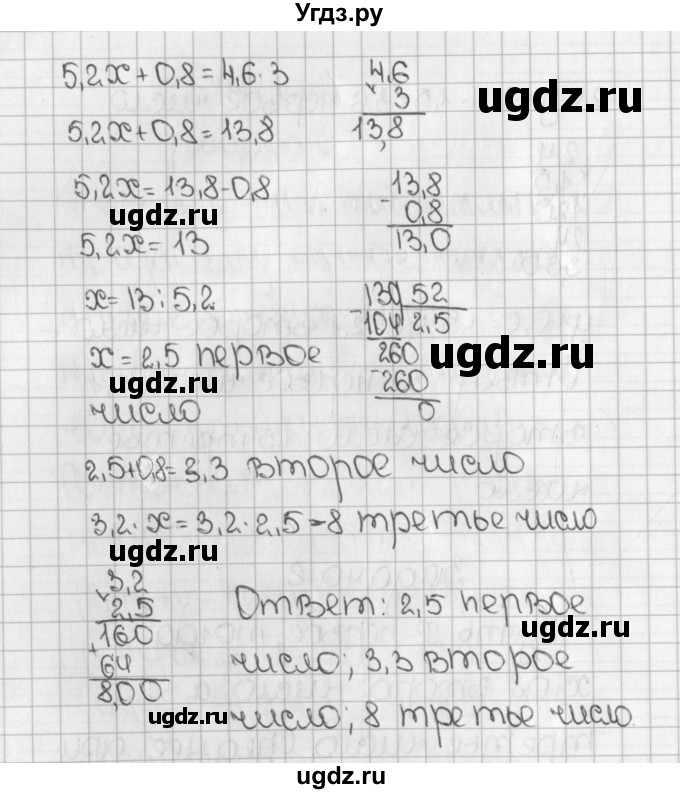 Угдз.ру
5,2x + 0,8 = 4,6 · 3
4,6
× 3
13,8
ugdz.ru
5,2x + 0,8 = 13,8
5,2x = 13,8 - 0,8
13,8
- 0,8
13,0
ugdz.ru
5,2x = 13
x = 13 : 5,2
130 52
- 104 2,5
260
- 260
0
ugdz.ru
x = 2,5 первое
ugdz.ru
число
2,5 + 0,8 = 3,3 второе число
3,2 · x = 3,2 · 2,5 = 8 третье число
ugdz.ru
3,2
× 2,5
160
+ 64
8,00
Ответ: 2,5 первое
ugdz.ru
число; 3,3 второе
ugdz.ru
число; 8 третье число.
ugdz.ru